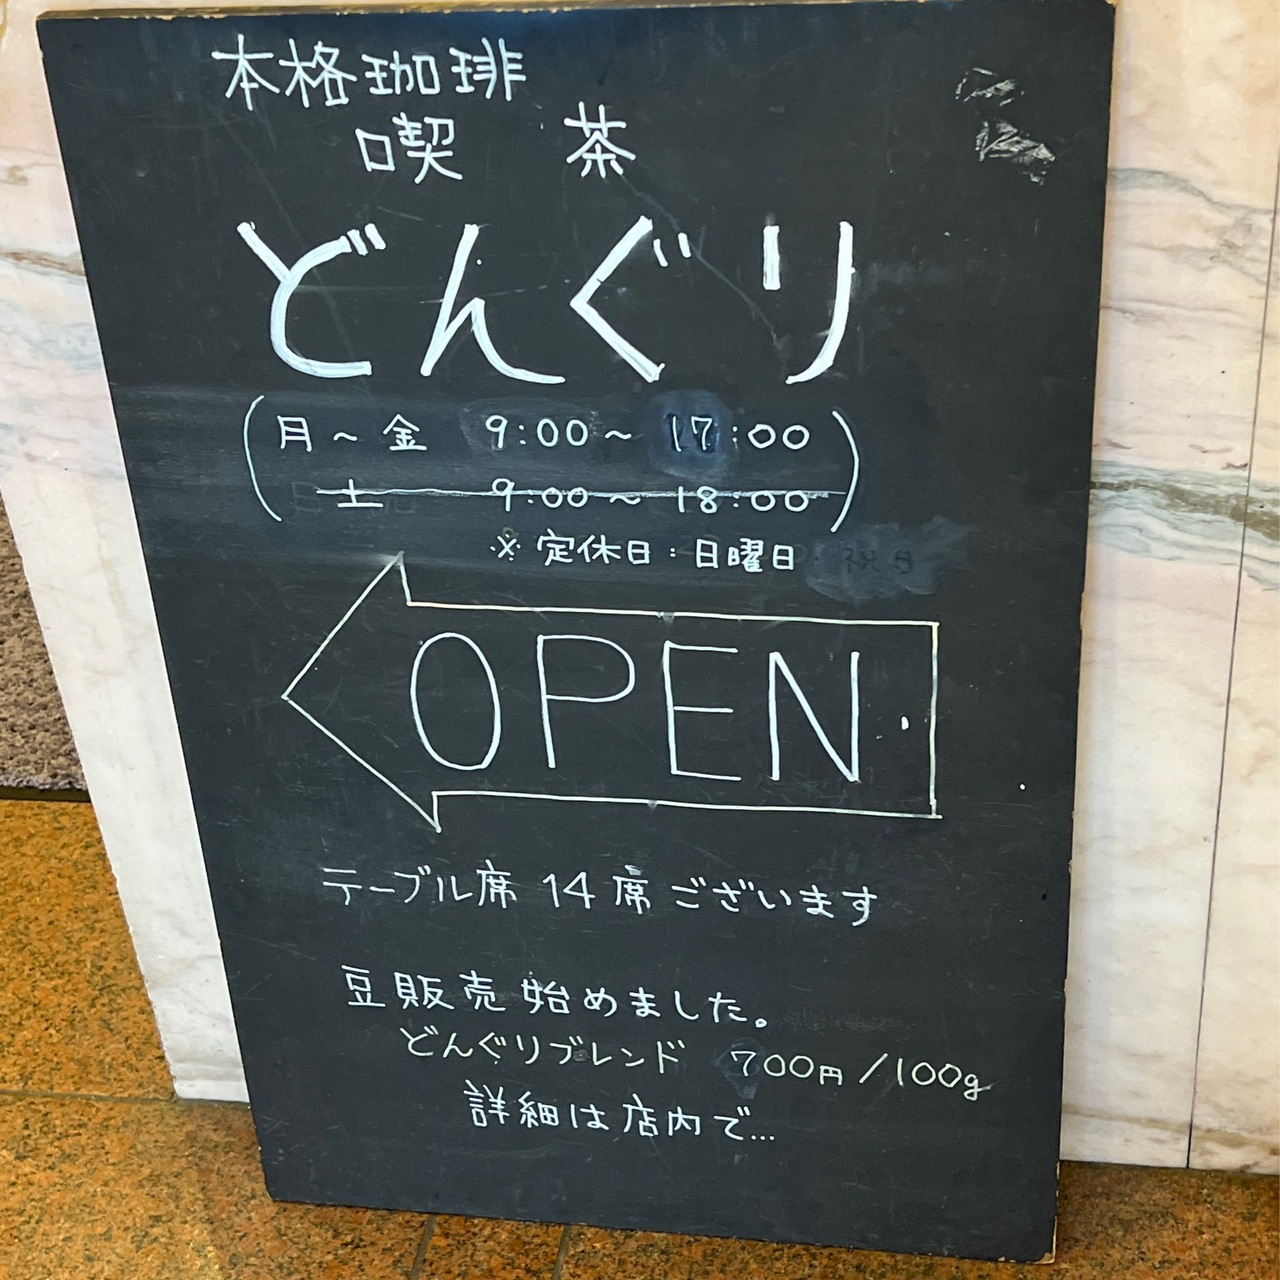 本格珈琲
喫 茶
どんぐり
(月～金 9:00～17:00
土 9:00～18:00)
※定休日:日曜日 祝日
OPEN
テーブル席 14席ございます
豆販売始めました。
どんぐりブレンド 700円/100g
詳細は店内で...